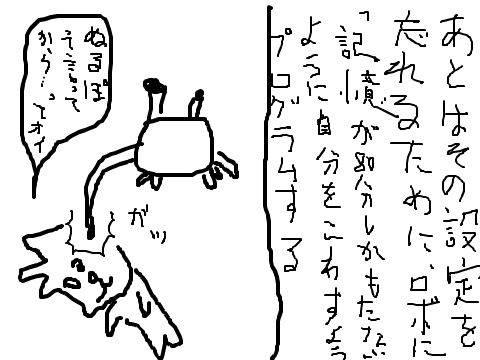 あとはその設定を
忘れるために、ロボに
「記憶が80分しかもたない
ように自分をこわすよう
プログラムする
ぬるぽ
そう言って
から…ってオイ
ガッ